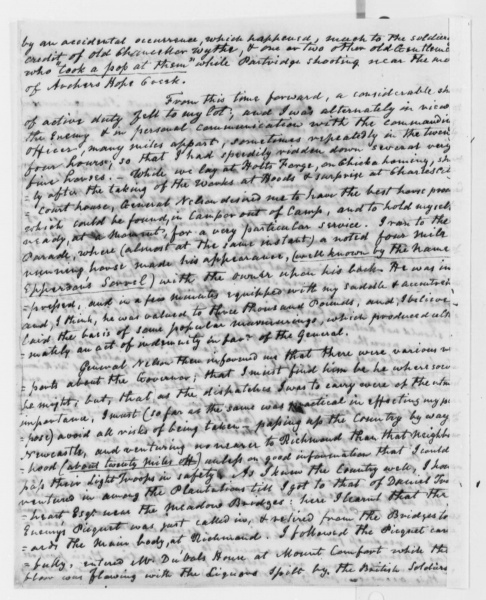 by an accidental occurrence, which happened, much to the soldier
credit of old Chancellor Wythe, & one or two other old Gentlem
who "took a pop at them" while Partridge shooting near the mo
of Archers Hope Creek.
From this time forward, a considerable sh
of active duty fell to my lot, and I was alternately in view
the Enemy & in personal communication with the commandin
officer, many miles appart, sometimes repeatedly in the twen
four hours, so that I had speedily ridden down several very
fine horses. – While we lay at Holts Forge, on Chickahominy, sh
=ly after the taking of the Works at Hoods & surprise at Charles Ci
= Court house, General Nelson desired me to have the best horse pres
which could be found, in Camp or out of Camp, and to hold myself
ready, at a Moment, for a very particular service. I ran to the
Parade, where (almost at the same instant) a noted four Mile
running horse made his appearance, (well known by the Name
Epperson's Sorrel) with the owner upon his back. He was im
=pressed, and in a few minutes equipped with my saddle & accoutrem
and, I think, he was valued to three thousand Pounds, and, I believe,
laid the basis of some popular murmurings, which produced ulti
=mately an act of indemnity in favr. of the General.
General Nelson then informed me that there were various re
=ports about the Governor; that I must find him be he where soev
he might; but, that as the dispatches I was to carry were of the utm
importance, I must (so far as the same was practical in effecting my pu
=pose) avoid all risks of being taken – passing up the Country by way
Newcastle, and venturing no nearer to Richmond than that Neighb
=hood (about twenty Miles off) unless on good information that I could
pass their Light Troops in safety. As I knew the Country well, I how
ventured in among the Plantations till I got to that of Daniel Tru
=heart Esqr near the Meadow Bridges: here I learnt that the
Enemy's Picquet was just called in, & retired from the Bridges to
=ards the Main body, at Richmond. I followed the Picquet care
=fully, entered Mr. Duvals House at Mount Comfort while the
floor was flowing with the Liquors spilt by the British Soldiers